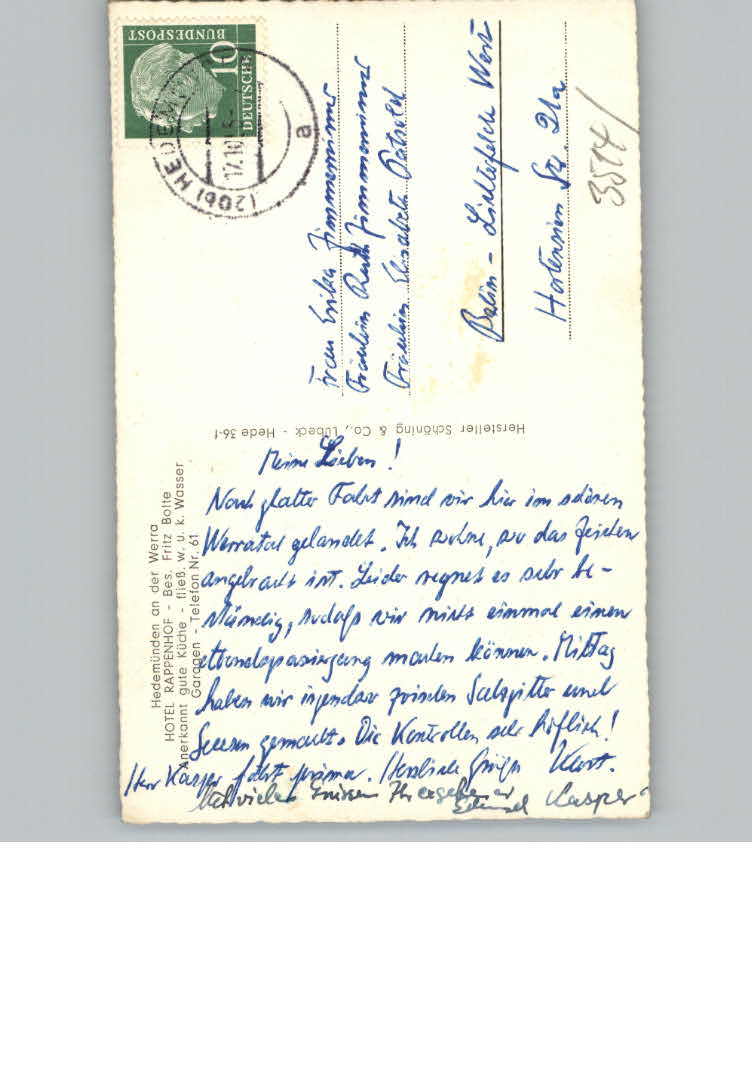 Hedemünden an der Werra
HOTEL RAPPENHOF - Bes. Fritz Bolte
Anerkannt gute Küche - fließ. w. u. k. Wasser
Garagen - Telefon Nr. 61
Hersteller Schöning & Co., Lübeck - Hede 36-f
DEUTSCHE
BUNDESPOST
10
(20b) HEDEM
17.10.
a
Frau Erika Zimmermann
Fräulein Ruth Zimmermann
Fräulein Elisabeth
Berlin - Lichterfelde West
Hortensien Str. 21a
Meine Lieben!
Nach glatter Fahrt sind wir hier im schönen
Werratal gelandet. Ich wohne, wo das Zeichen
angebracht ist. Leider regnet es sehr be-
ständig, sodaß wir nicht einmal einen
Abendspaziergang machen können. Mittag
haben wir irgendwo zwischen Salzgitter und
Seesen gemacht. Die Kontrollen sehr höflich!
Herr Kasper fährt prima. Herzliche Grüße Kurt.
Mit vielen Grüssen Ihr ergebener
Kasper